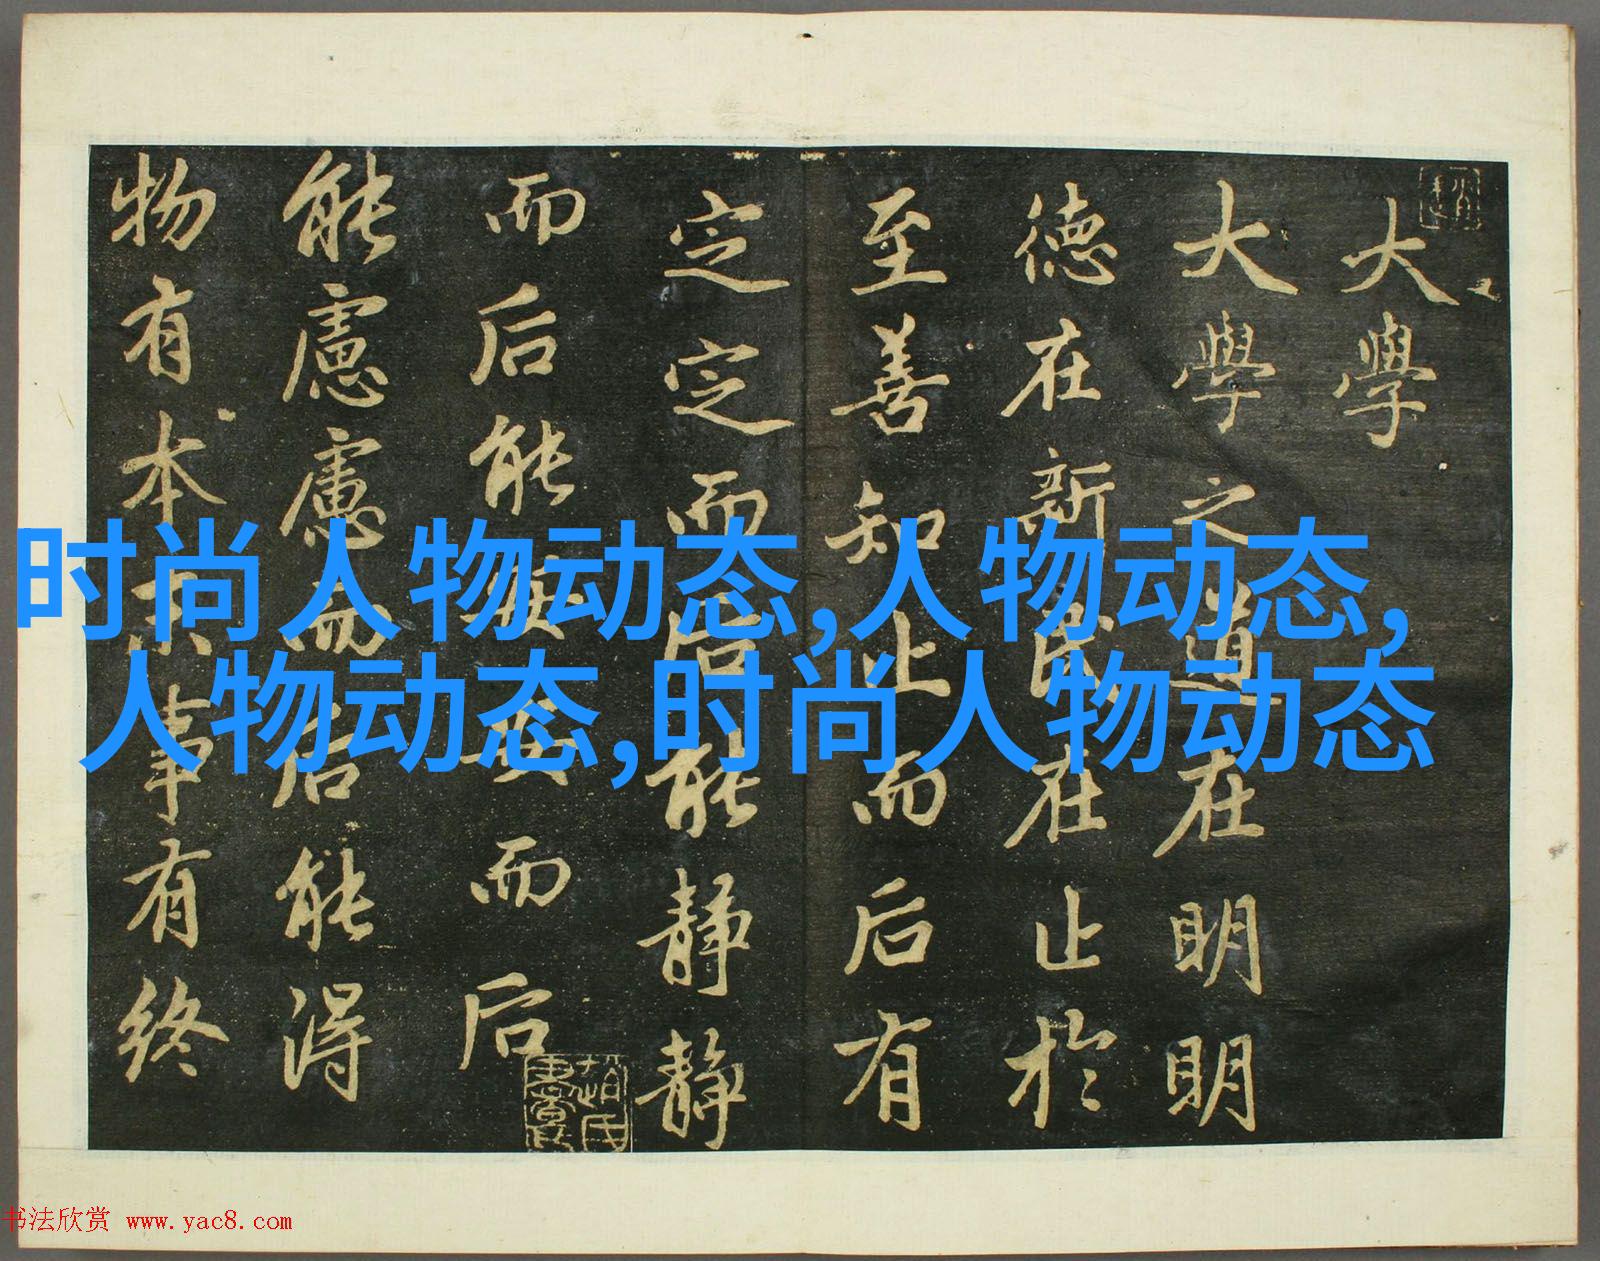 大學
大學之道在明明
德在新民在止於
至善知止而后有
定定而后能静静
而后能安安而后
能慮慮而后能得
物有本末事有終
时尚人物动态,人物动态,
人物动态,时尚人物动态
书法欣赏 www.yac8.com